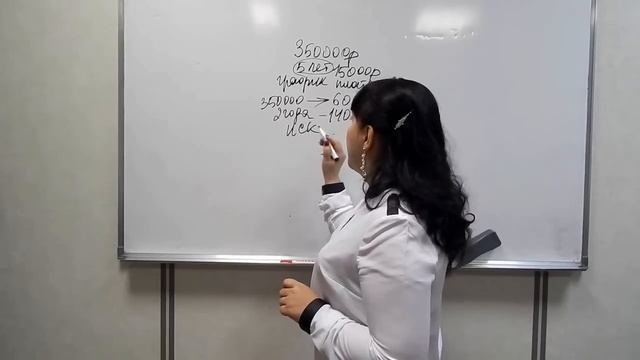 350000р
5 лет 15000р
график плат
350000 → 60
2 года – 140
иск